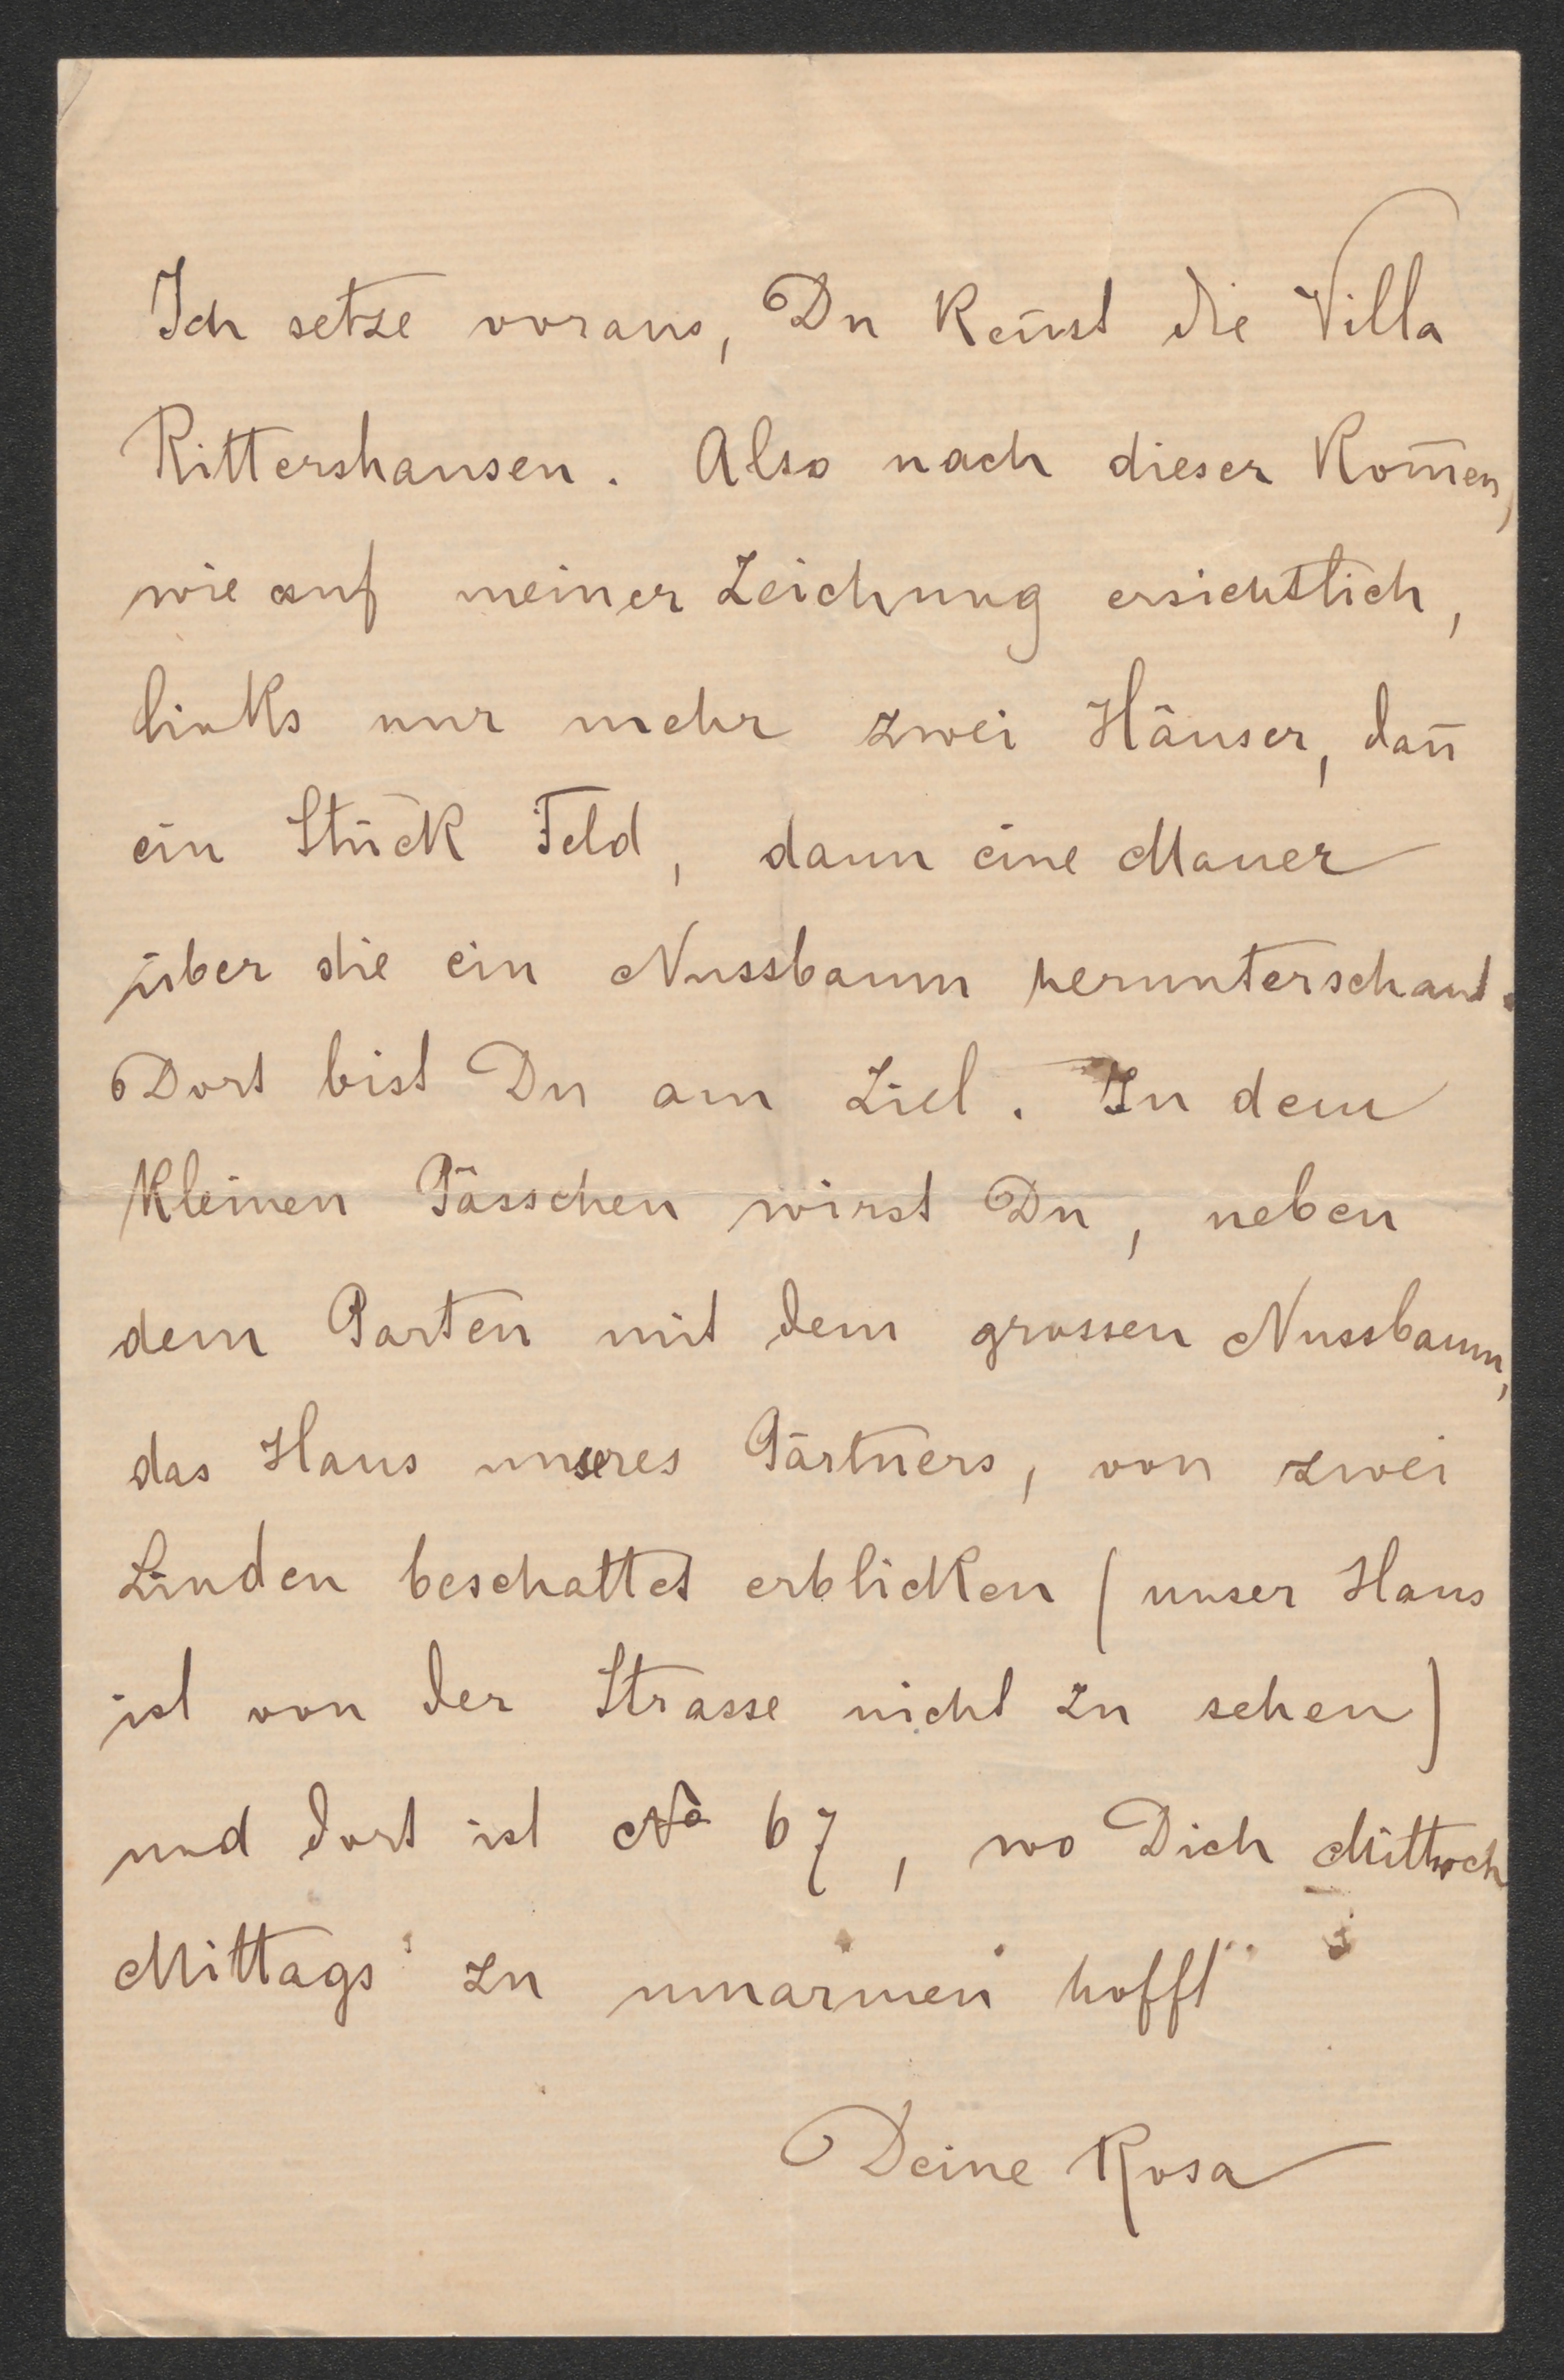 Ich setze voraus, Du keñst die Villa
Rittershausen. Also nach dieser kom̄en,
wie auf meiner Zeichnung ersichtlich,
links nur mehr zwei Häuser, dañ
ein Stück Feld, dann eine Mauer
über die ein Nussbaum herunterschaut.
Dort bist Du am Ziel. In dem
kleinen Gässchen wirst Du, neben
dem Garten mit dem grossen Nussbaum,
das Haus unseres Gärtners, von zwei
Linden beschattet erblicken (unser Haus
ist von der Strasse nicht zu sehen)
und dort ist No 67, wo Dich Mittwoch
Mittags zu umarmen hofft
Deine Rosa